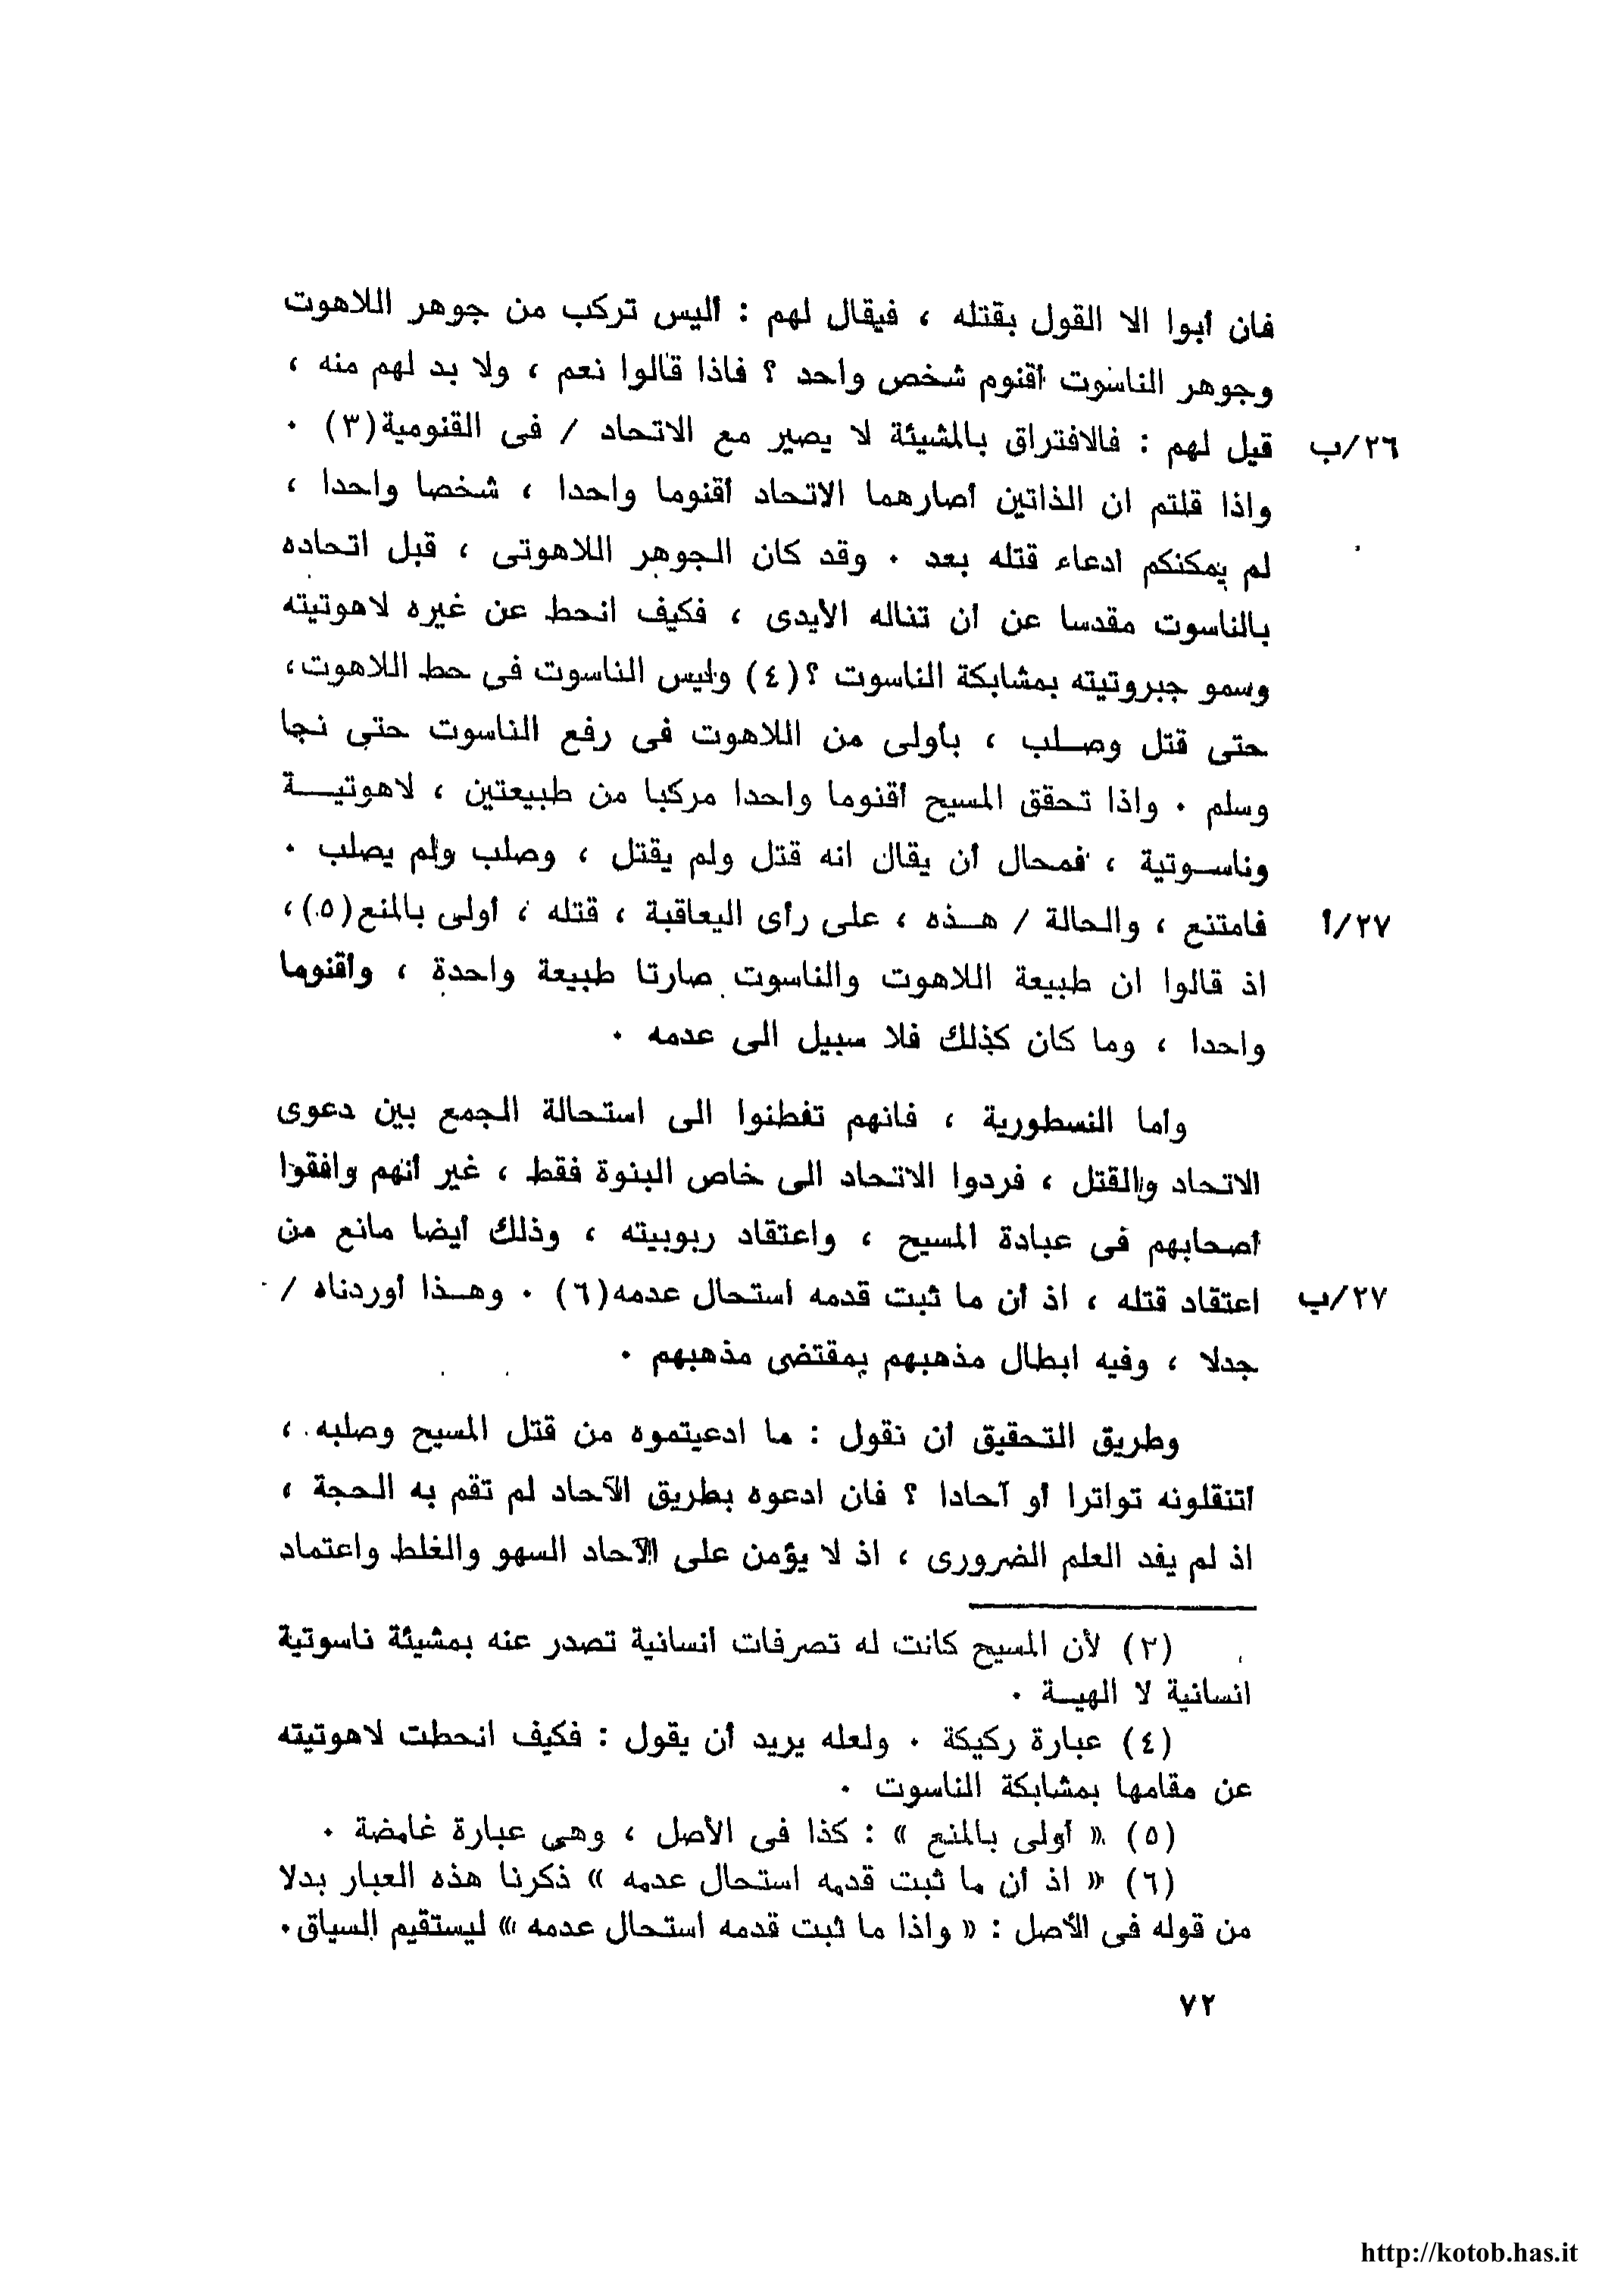 فان أبوا الا القول بقتله ، فيقال لهم : أليس تركب من جوهر اللاهوت
وجوهر الناسوت أقنوم شخص واحد ؟ فاذا قالوا نعم ، ولا بد لهم منه ،
٢٦/ب قيل لهم : فالافتراق بالمشيئة لا يصير مع الاتحاد / فى القنومية(٣) ٠
واذا قلتم ان الذاتين أصارهما الاتحاد أقنوما واحدا ، شخصا واحدا ،
لم يمكنكم ادعاء قتله بعد ٠ وقد كان الجوهر اللاهوتى ، قبل اتحاده
بالناسوت مقدسا عن أن تناله الأيدى ، فكيف انحط عن غيره لاهوتيته
وسمو جبروتيته بمشابكة الناسوت ؟(٤) وليس الناسوت فى حط اللاهوت،
حتى قتل وصلب ، بأولى من اللاهوت فى رفع الناسوت حتى نجا
وسلم ٠ واذا تحقق المسيح أقنوما واحدا مركبا من طبيعتين ، لاهوتية
وناسوتية ، فمحال أن يقال انه قتل ولم يقتل ، وصلب ولم يصلب ٠
٢٧/أ فامتنع ، والحالة / هذه ، على رأى اليعاقبة ، قتله ، أولى بالمنع(٥)،
اذ قالوا ان طبيعة اللاهوت والناسوت صارتا طبيعة واحدة ، وأقنوما
واحدا ، وما كان كذلك فلا سبيل الى عدمه ٠
وأما النسطورية ، فانهم تفطنوا الى استحالة الجمع بين دعوى
الاتحاد والقتل ، فردوا الاتحاد الى خاص البنوة فقط ، غير أنهم وافقوا
أصحابهم فى عبادة المسيح ، واعتقاد ربوبيته ، وذلك أيضا مانع من
٢٧/ب اعتقاد قتله ، اذ أن ما ثبت قدمه استحال عدمه(٦) ٠ وهذا أوردناه /
جدلا ، وفيه ابطال مذهبهم بمقتضى مذهبهم ٠
وطريق التحقيق أن نقول : ما ادعيتموه من قتل المسيح وصلبه ،
أتنقلونه تواترا أو آحادا ؟ فان ادعوه بطريق الآحاد لم تقم به الحجة ،
اذ لم يفد العلم الضرورى ، اذ لا يؤمن على الآحاد السهو والغلط واعتماد
(٣) لأن المسيح كانت له تصرفات انسانية تصدر عنه بمشيئة ناسوتية
انسانية لا الهية ٠
(٤) عبارة ركيكة ٠ ولعله يريد أن يقول : فكيف انحطت لاهوتيته
عن مقامها بمشابكة الناسوت ٠
(٥) « أولى بالمنع » : كذا فى الأصل ، وهى عبارة غامضة ٠
(٦) « اذ أن ما ثبت قدمه استحال عدمه » ذكرنا هذه العبار بدلا
من قوله فى الأصل : « واذا ما ثبت قدمه استحال عدمه » ليستقيم السياق٠
٧٢
http://kotob.has.it